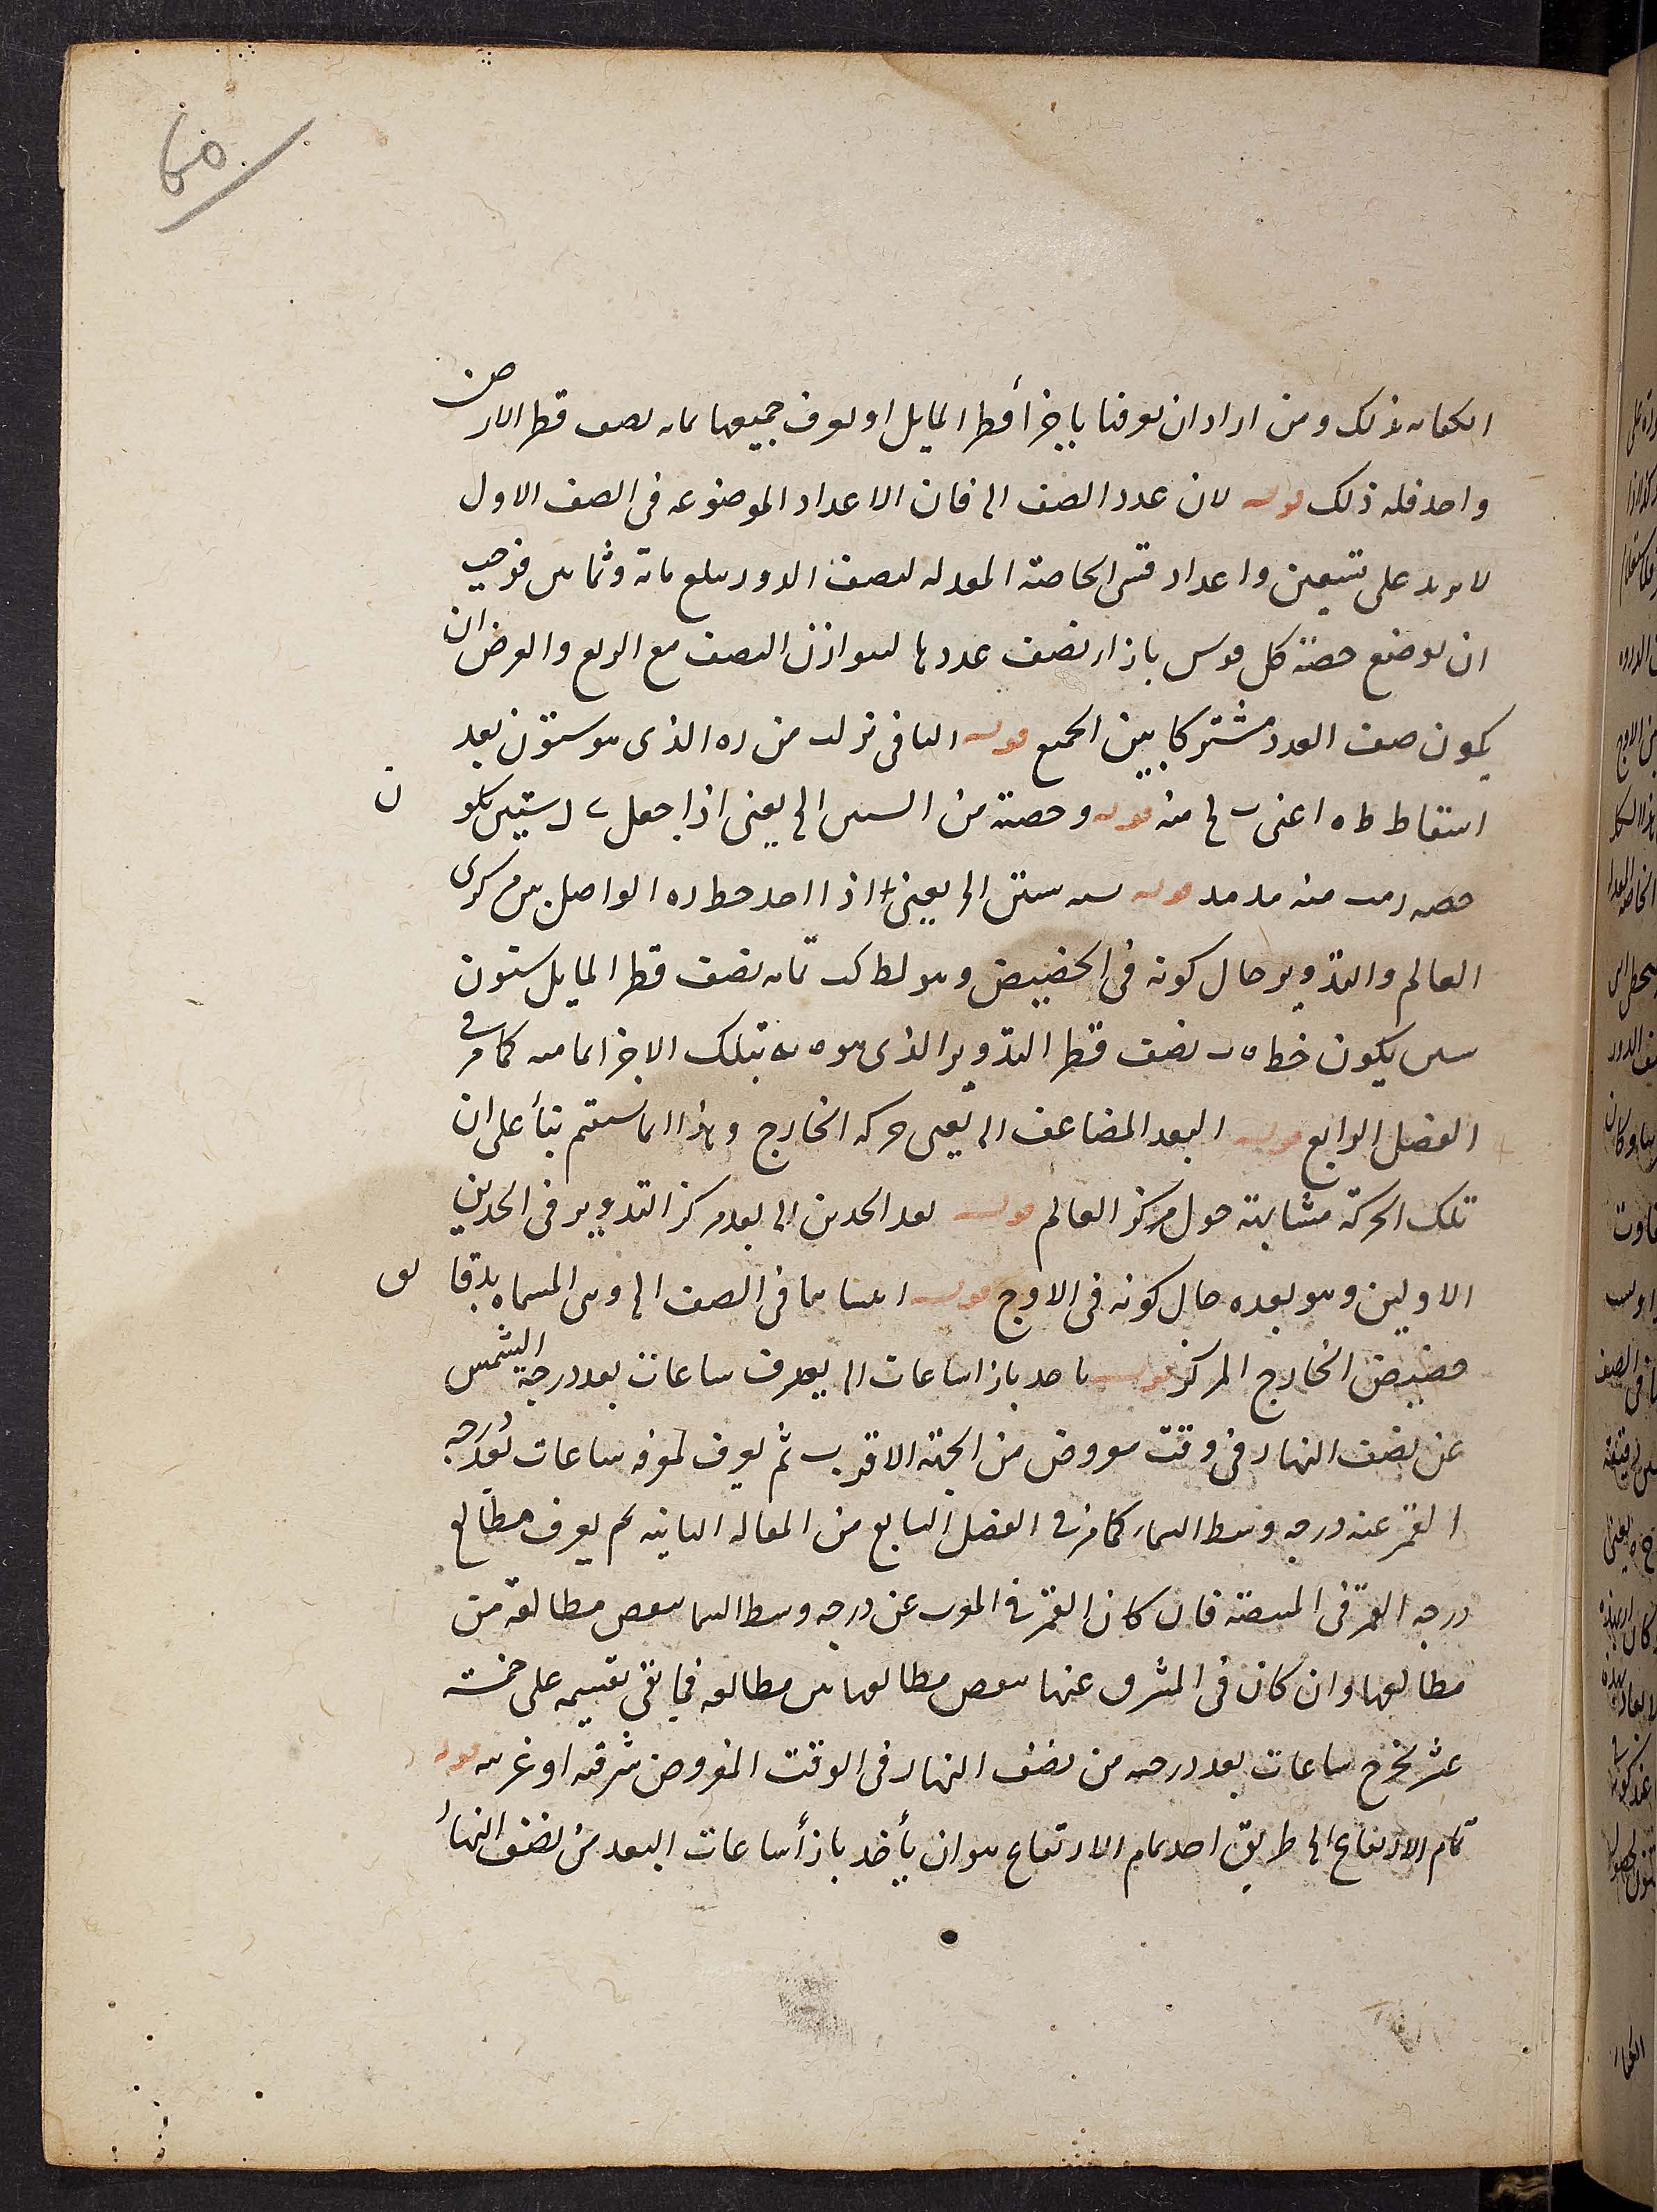 ٦٥
الكفاية بذلك ومن اراد ان يعرفنا باجزأ قطر المايل او يعرف جميعها بما به نصف قطر الارض
واحد فله ذلك قوله لان عدد الصف الى فان الاعداد الموضوعه فى الصف الاول
لا يزيد على تسعين واعداد قسى الخاصة المعدله لنصف الدور يبلغ مائة وثمانين فوجب
ان يوضع حصة كل قوس بازاء نصف عددها ليتوازن النصف مع الربع والغرض ان
يكون صف العدد مشتركا بين الجميع قوله الباقى من ده الذى هو ستون بعد
اسقاط ط ه اعنى منه قوله وحصته من الستين الى يعنى اذا جعل ستين يكون
حصة منه قوله ستين الى يعنى اذا اخذ خط ده الواصل بين مركزى
العالم والتدوير حال كونه فى الحضيض وهو لط كب بما به نصف قطر المايل ستون
ستين يكون خط ه ب نصف قطر التدوير الذى هو ه بتلك الاجزا ثمانيه كما مر فى
الفصل الرابع قوله البعد المضاعف الى يعنى حركة الخارج وهذا انما يستقيم بنأ على ان
تلك الحركة متشابهة حول مركز العالم قوله بعد الحدين الى بعد مركز التدوير فى الحدين
الاولين وهو بعده حال كونه فى الاوج قوله اثبتناها فى الصف الى وهى المسماه بدقايق
حضيض الخارج المركز قوله ناخذ بازا ساعات الى يعرف ساعات بعد درجة الشمس
عن نصف النهار فى وقت مفروض من الجهة الاقرب ثم يعرف لمعرفة ساعات بعد درجة
القمر عنه درجه وسط السماء كما مر فى الفصل السابع من المقاله الثانيه ثم يعرف مطالع
درجه القمر فى المستقيمة فان كان القمر فى المغرب عن درجه وسط السما ينقص مطالعه من
مطالعها وان كان فى المشرق عنها ينقص مطالعها من مطالعه فما بقى نقسمه على خمسة
عشر يخرج ساعات بعد درجته من نصف النهار فى الوقت المفروض شرقيه او غربيه قوله
تمام الارتفاع الى طريق اخذ تمام الارتفاع هو ان يأخذ بازأ ساعات البعد من نصف النهار